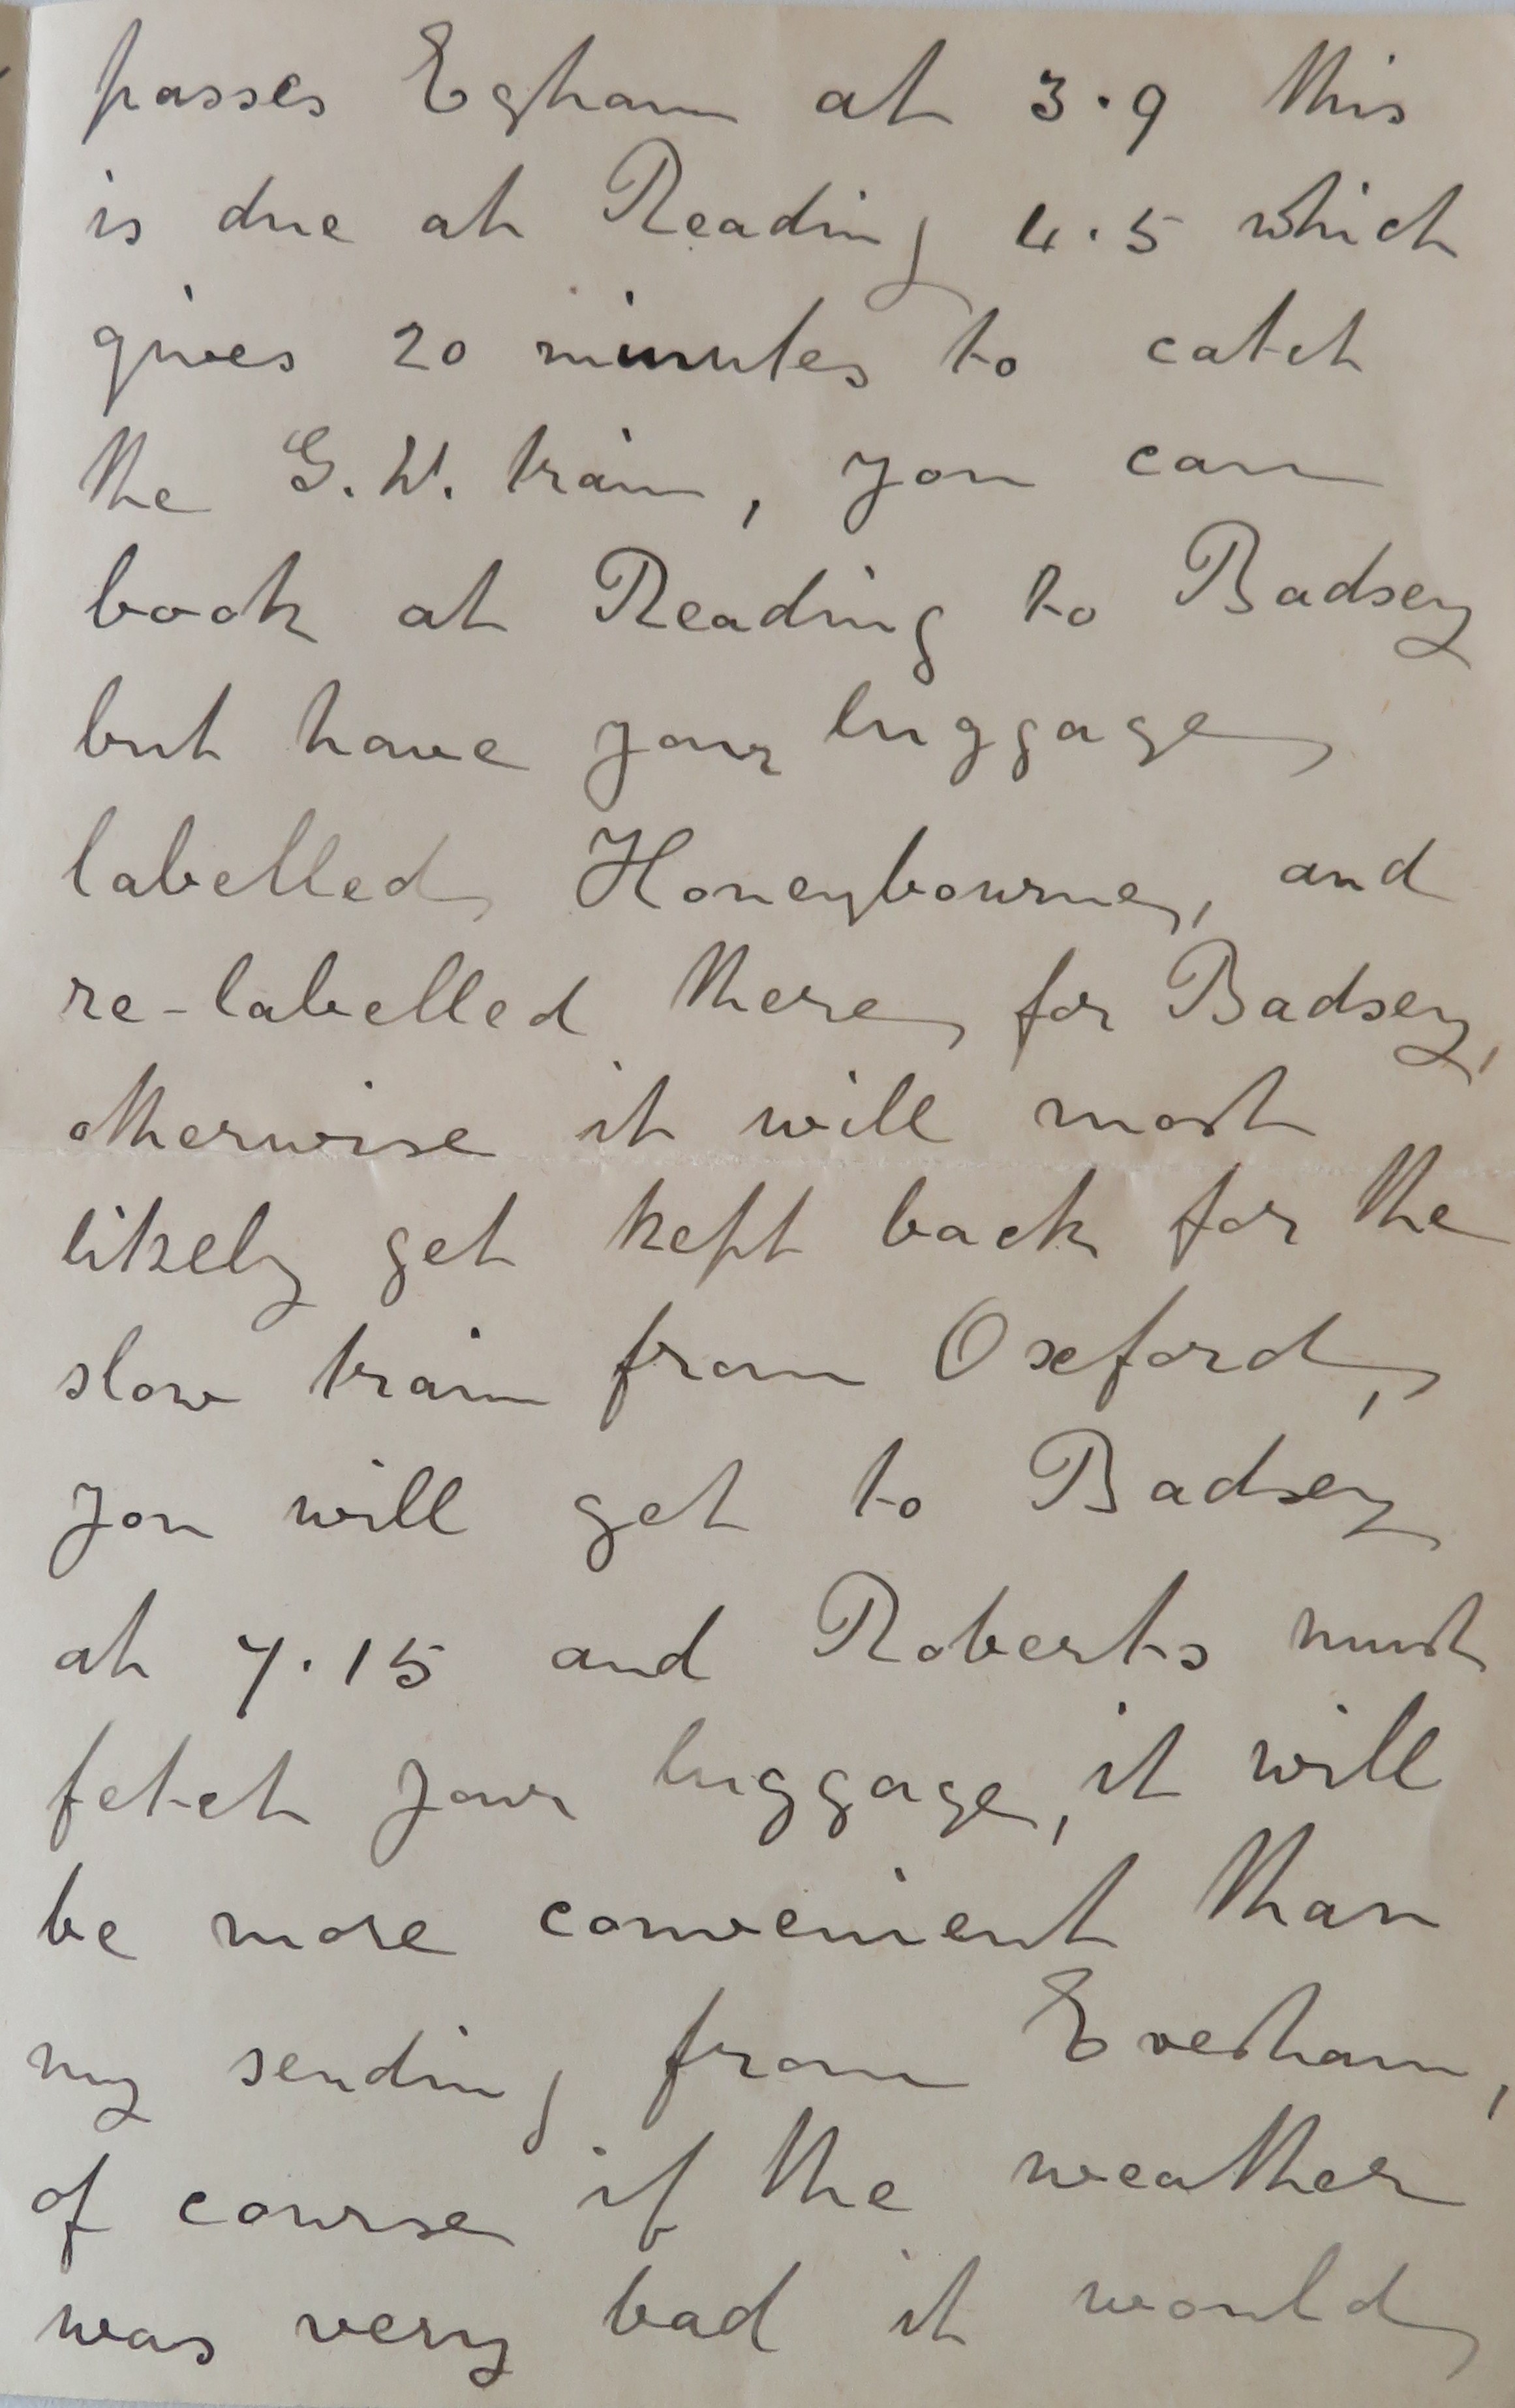 passes Egham at 3.9 this
is due at Reading 4.5 which
gives 20 minutes to catch
the G.W. train, you can
book at Reading to Badsey
but have your luggage
labelled Honeybourne, and
re-labelled there for Badsey,
otherwise it will most
likely get kept back for the
slow train from Oxford,
you will get to Badsey
at 7.15 and Roberts must
fetch your luggage, it will
be more convenient than
my sending from Evesham,
of course if the weather
was very bad it would